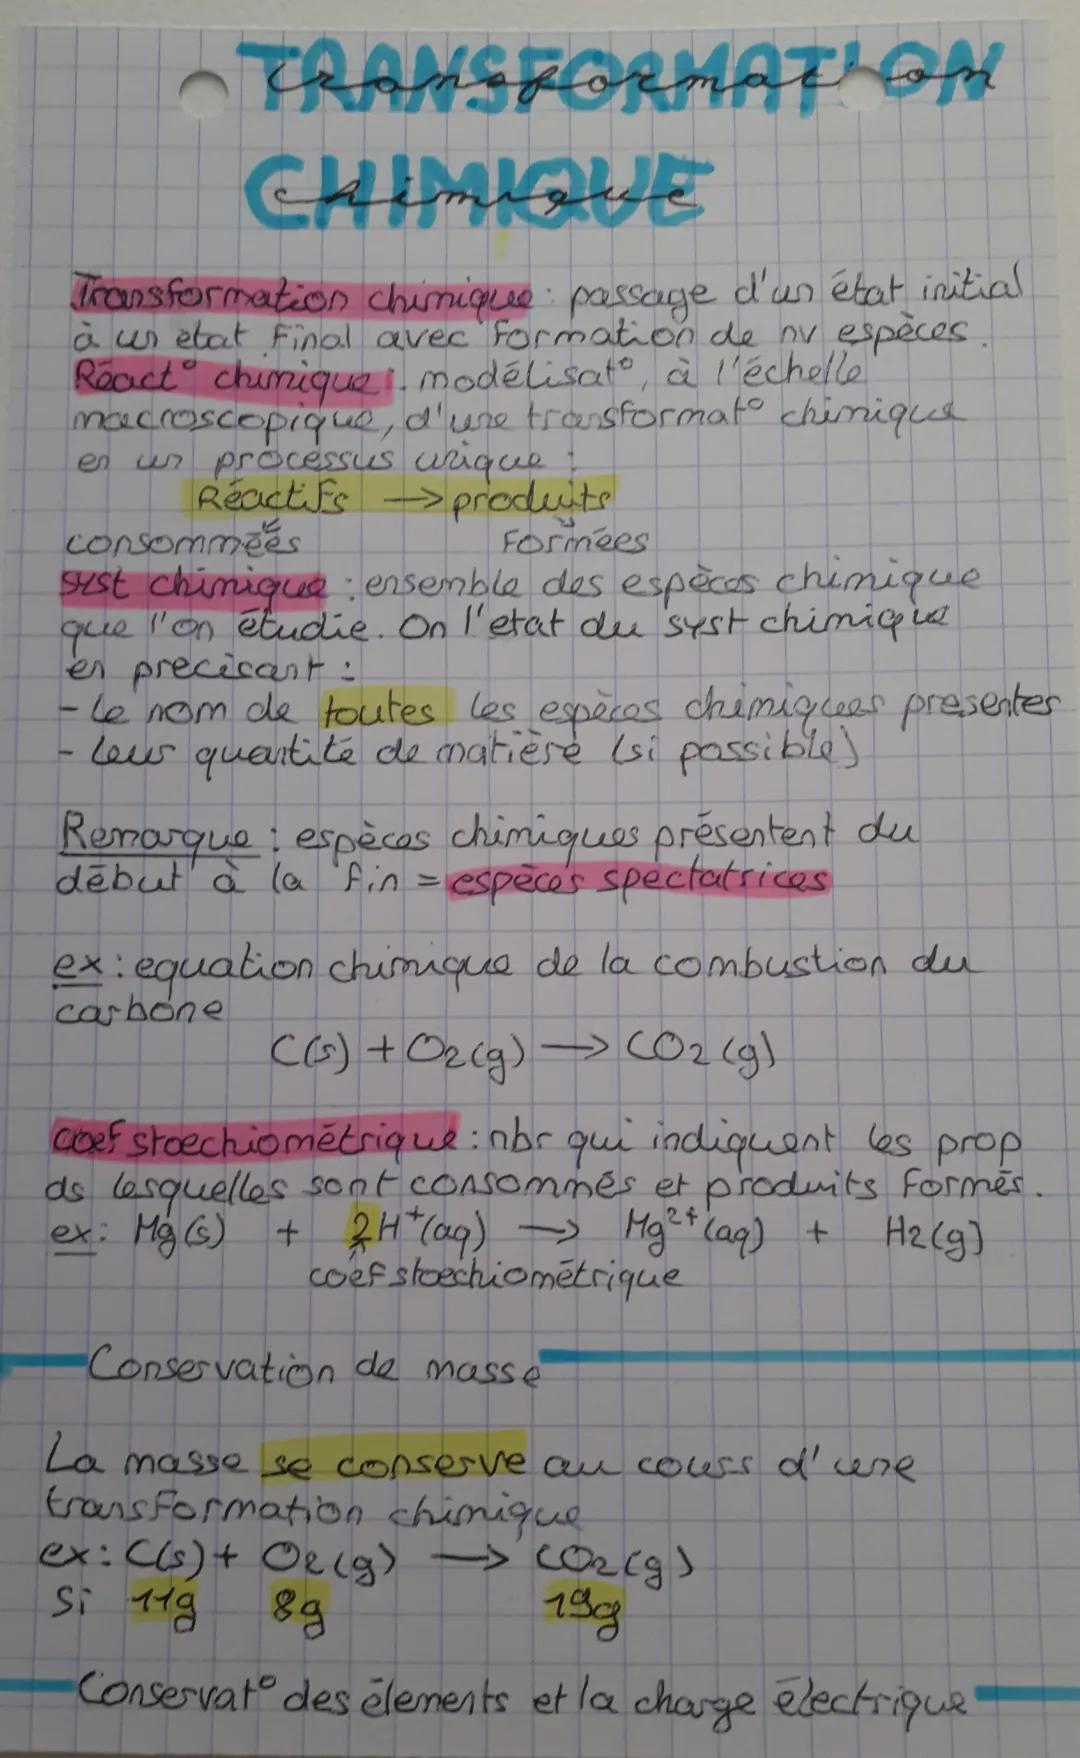 TRANSFORMATION
CHIMIQUE
Transformation chimique : passage d'un état initial
à un etat final avec formation de nv espèces.
Réact° chimique : modélisat°, à l'échelle
macroscopique, d'une transformat° chimique
en un processus unique :
Réactifs → produits
consommées formées
syst chimique : ensemble des espèces chimique
que l'on étudie. On l'etat du syst chimique
en precisant :
- Le nom de toutes les espèces chimiques presentes
- Leur quantité de matière (si possible)
Remarque : espèces chimiques présentent du
début à la fin = espèces spectatrices
ex : equation chimique de la combustion du
carbone
C(s) + O2(g) → CO2(g)
coef stoechiométrique : nbr qui indiquent les prop
ds lesquelles sont consommés et produits formés.
ex : Mg(s) + 2H⁺(aq) → Mg²⁺(aq) + H2(g)
coef stoechiométrique
Conservation de masse
La masse se conserve au cours d'une
transformation chimique
ex : C(s) + O2(g) → CO2(g)
Si 11g 8g 19g
Conservat° des élements et la charge électrique